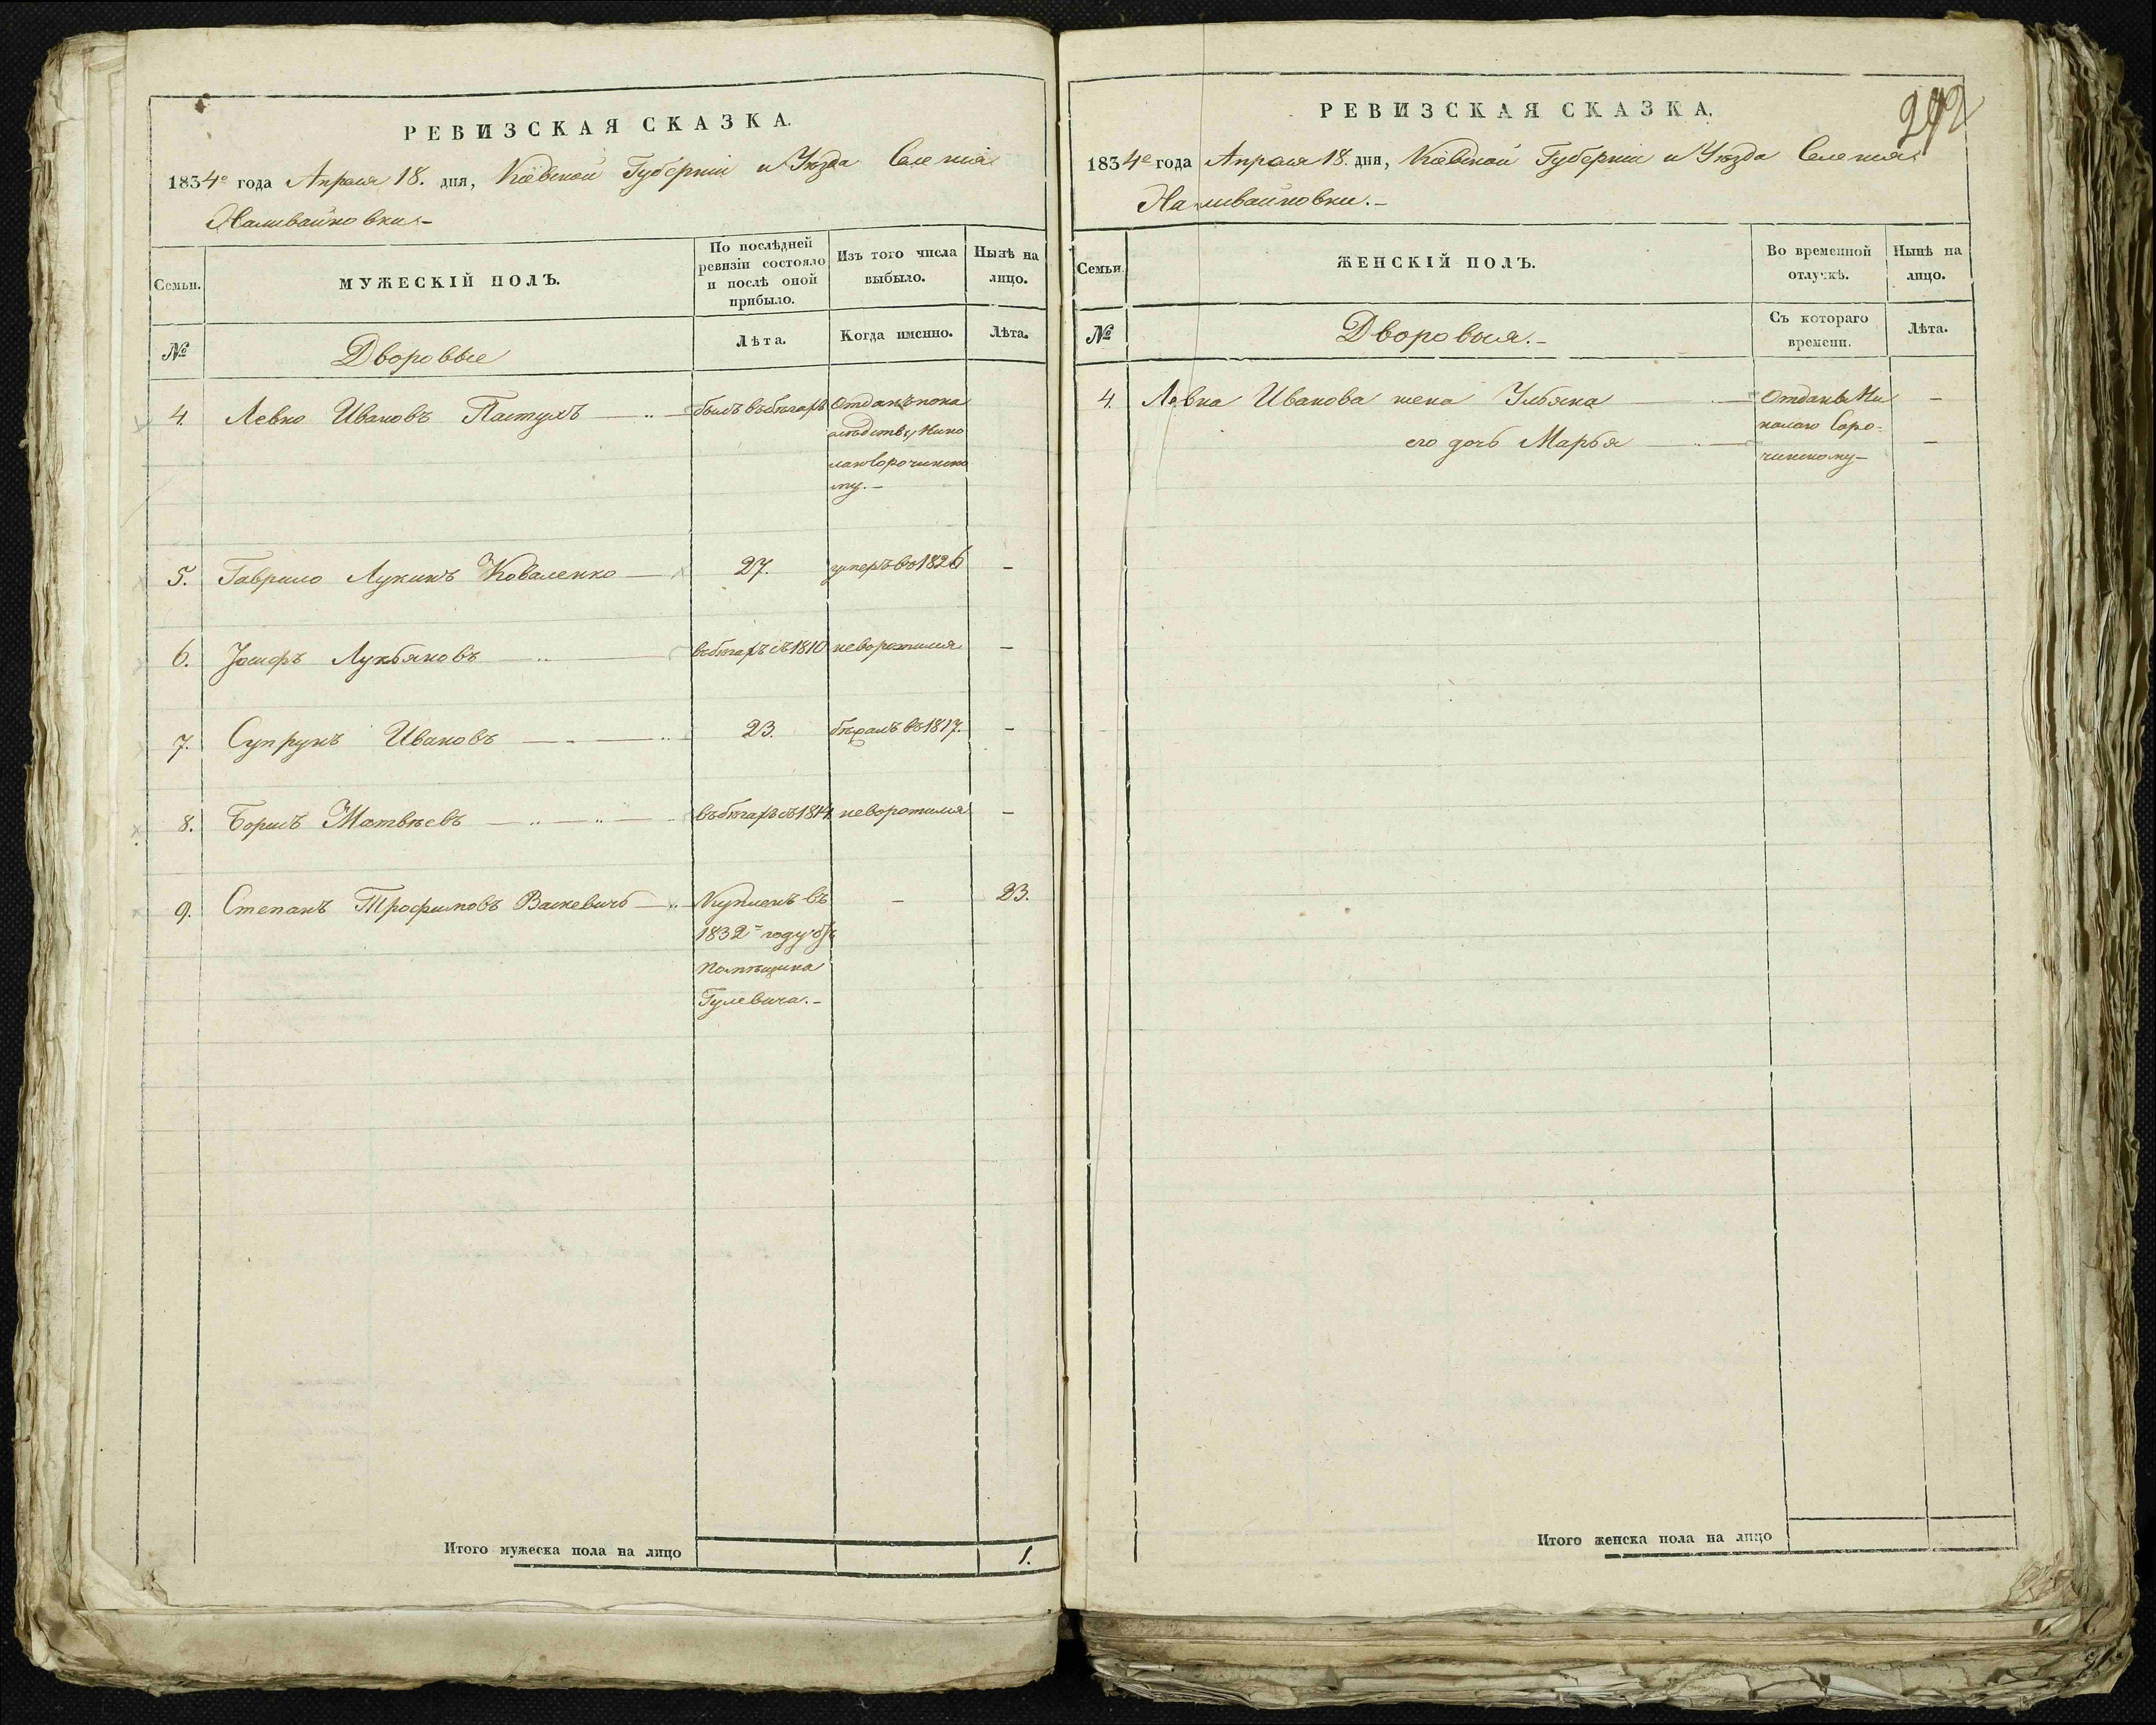 РЕВИЗСКАЯ СКАЗКА.
1834го года Апреля 18. дня, Кіевской Губерніи и Уѣзда Селенія
Наливайковки.-
Семьи.
МУЖЕСКІЙ ПОЛЪ.
По послѣдней
ревизіи состояло
и послѣ оной
прибыло.
Изъ того числа
выбыло.
Нынѣ на
лицо.
№
Дворовые
Лѣта.
Когда именно.
Лѣта.
4. Левко Ивановъ Пастухъ былъ въ бѣгахъ Отданъ пона
слѣдству Нико
лаю Сорочинско
му.-
5. Гаврило Лукинъ Коваленко 27. умеръ въ 1826 -
6. Іосифъ Лукьяновъ въ бѣгахъ съ 1810 неворотился -
7. Супрунъ Ивановъ 23. бѣжалъ въ 1817. -
8. Борисъ Матвѣевъ въ бѣгахъ съ 1814 неворотился -
9. Степанъ Трофимовъ Васкевичъ Купленъ въ - 23.
1832 году
Помѣщика
Гулевича.-
Итого мужеска пола на лицо 1.
292
РЕВИЗСКАЯ СКАЗКА.
1834го года Апреля 18. дня, Кіевской Губерніи и Уѣзда Селенія
Наливайковки.-
Семьи.
ЖЕНСКІЙ ПОЛЪ.
Во временной
отлучкѣ.
Нынѣ на
лицо.
№
Дворовыя.-
Съ котораго
времени.
Лѣта.
4. Левка Иванова жена Ульяна Отданы Ни -
его дочь Марья колаю Соро- -
чинскому-
Итого женска пола на лицо